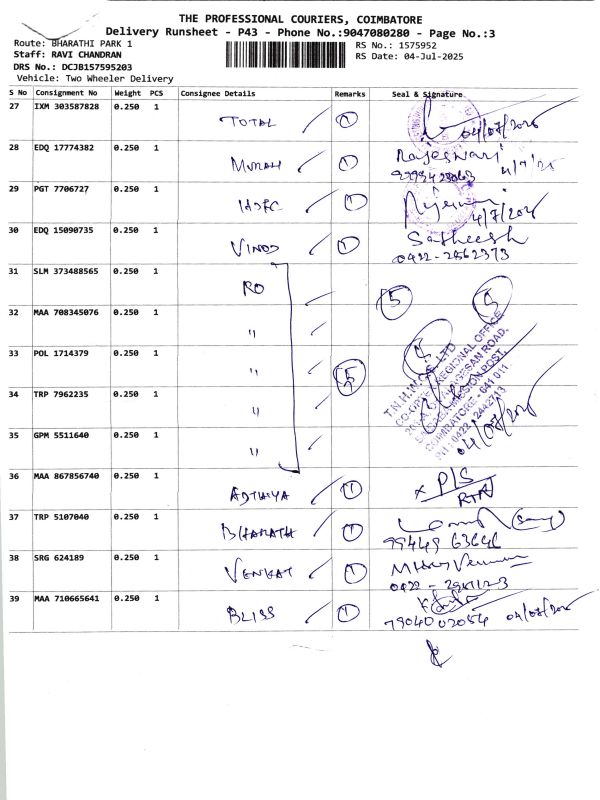 THE PROFESSIONAL COURIERS, COIMBATORE
Delivery Runsheet - P43 - Phone No.:9047080280 - Page No.:3
Route: BHARATHI PARK 1
RS No.: 1575952
Staff: RAVI CHANDRAN
RS Date: 04-Jul-2025
DRS No.: DCJB157595203
Vehicle: Two Wheeler Delivery
S No Consignment No Weight PCS Consignee Details Remarks Seal & Signature
27 IXM 303587828 0.250 1
TOTAL 1 04/07/2025
28 EDQ 17774382 0.250 1
MURALI 1 Rajeswari
4/7/25
29 PGT 7706727 0.250 1
HDFC 1
4/7/2025
30 EDQ 15090735 0.250 1
VINOD 1 Satheesh
0422-2562373
31 SLM 373488565 0.250 1
RO 5 5
32 MAA 708345076 0.250 1
"
33 POL 1714379 0.250 1
" 5
T.N.H.W.C.S. LTD
CO-OP REGIONAL OFFICE
COIMBATORE - 641 011
04/07/2025
34 TRP 7962235 0.250 1
"
35 GPM 5511640 0.250 1
"
36 MAA 867856740 0.250 1
ADTHIYA 1 x P/S
RTN
37 TRP 5107040 0.250 1
BHARATH 1
99449 63646
38 SRG 624189 0.250 1
VENKAT 1
39 MAA 710665641 0.250 1
BLISS 1
7904002054 04/07/2025